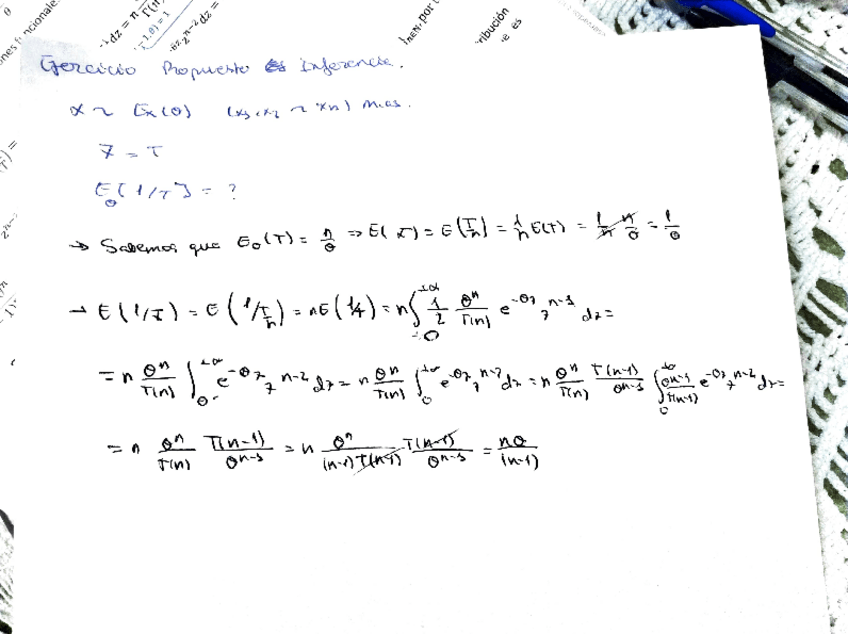 ones f
ncionale
dz = n
Γ(n)
θz z^{n-2} dz =
Inen por
ribución
e es
Ejercicio Propuesto Inferencia.
x ~ Ex(θ) (x1, x2 ~ xn) m.a.s.
z = T
E_θ[1/T] = ?
→ Sabemos que E_θ(T) = n/θ ⇒ E(T̄) = E(T/n) = 1/n E(T) = 1/n n/θ = 1/θ
→ E(1/T̄) = E(1/(T/n)) = nE(1/T) = n∫_0^{+∞} 1/z θ^n/Γ(n) e^{-θz} z^{n-1} dz =
= n θ^n/Γ(n) ∫_0^{+∞} e^{-θz} z^{n-2} dz = n θ^n/Γ(n) ∫_0^{+∞} e^{-θz} z^{n-2} dz = n θ^n/Γ(n) Γ(n-1)/θ^{n-1} ∫_0^{+∞} θ^{n-1}/Γ(n-1) e^{-θz} z^{n-2} dz =
= n θ^n/Γ(n) Γ(n-1)/θ^{n-1} = n θ^n/((n-1)Γ(n-1)) Γ(n-1)/θ^{n-1} = nθ/(n-1)